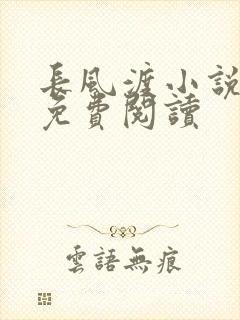 長風渡小說
免費閱讀
雲語無痕